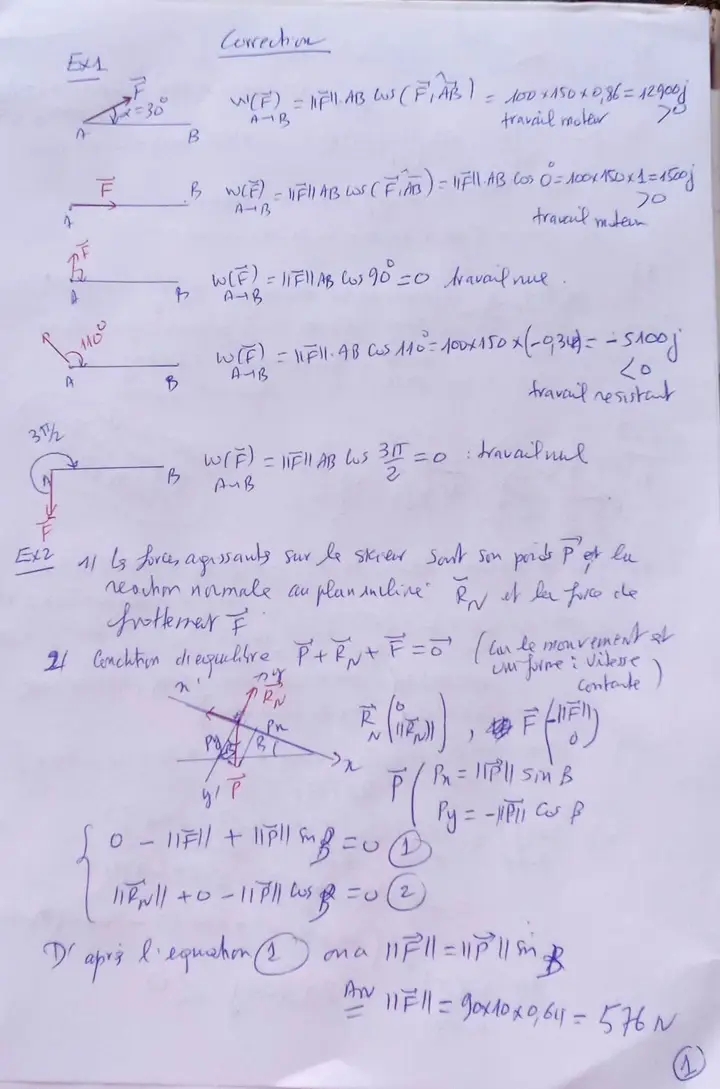 Correction
Ex1
F α=30° A B
W(F) A→B = ||F||.AB cos(F,AB) = 100x150x0,86=12900j >0
travail moteur
F A B
W(F) A→B = ||F|| AB cos(F,AB) = ||F||.AB cos 0° = 100x150x1=1500j >0
travail moteur
F A B
W(F) A→B = ||F|| AB cos 90° = 0 travail nue.
110° A B
W(F) A→B = ||F||.AB cos 110° = 100x150x(-0,34) = -5100j <0
travail resistant
3π/2 A B F
W(F) A→B = ||F|| AB cos 3π/2 = 0 : travail nul
Ex2 1/ Les forces agissants sur le skieur sont son poids P et la
reaction normale au plan incliné R_N et la force de
frottement F
2/ Condition d'equilibre P + R_N + F = 0 (car le mouvement est
uniforme : vitesse
contante)
x' y R_N Px Py B x y' P
R_N (0 ||R_N||) , F (-||F|| 0)
P ( Px = ||P|| sin B
Py = -||P|| cos β
0 - ||F|| + ||P|| sin B = 0 (1)
||R_N|| + 0 - ||P|| cos B = 0 (2)
D'après l'equation (1) on a ||F|| = ||P|| sin B
AN ||F|| = 90x10x0,64 = 576 N
1